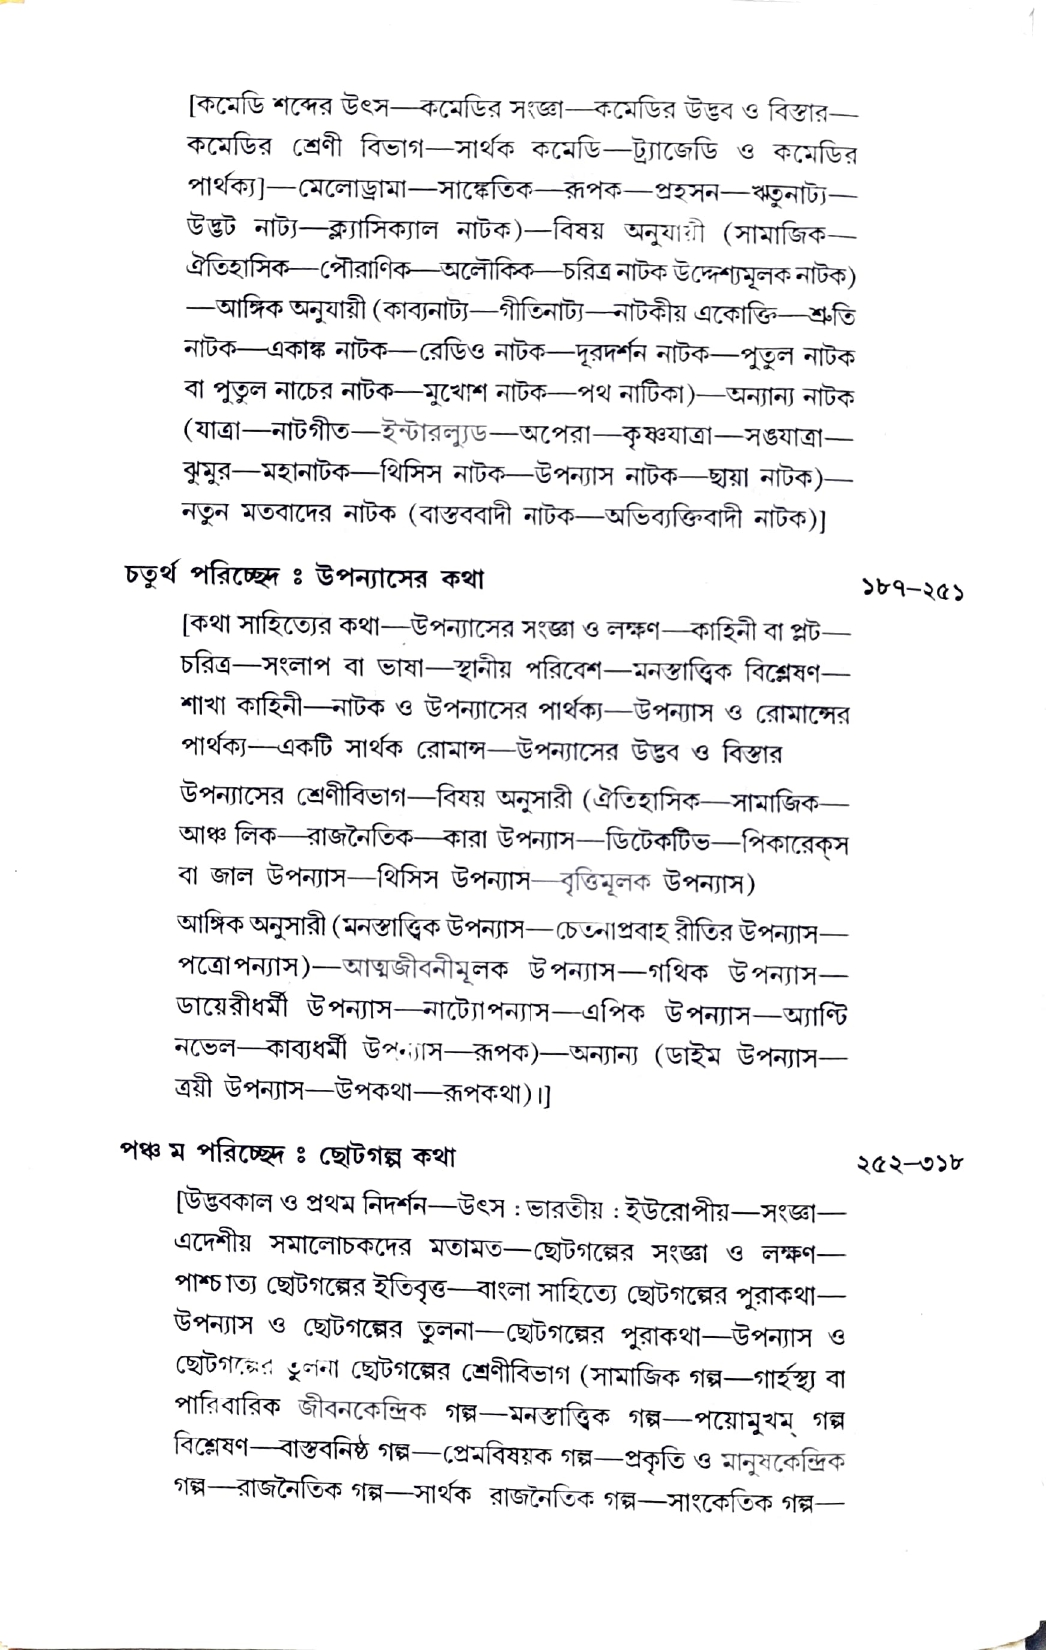 [কমেডি শব্দের উৎস—কমেডির সংজ্ঞা—কমেডির উদ্ভব ও বিস্তার—
কমেডির শ্রেণী বিভাগ—সার্থক কমেডি—ট্র্যাজেডি ও কমেডির
পার্থক্য]—মেলোড্রামা—সাঙ্কেতিক—রূপক—প্রহসন—ঋতুনাট্য—
উদ্ভট নাট্য—ক্ল্যাসিক্যাল নাটক)—বিষয় অনুযায়ী (সামাজিক—
ঐতিহাসিক—পৌরাণিক—অলৌকিক—চরিত্র নাটক উদ্দেশ্যমূলক নাটক)
—আঙ্গিক অনুযায়ী (কাব্যনাট্য—গীতিনাট্য—নাটকীয় একোক্তি—শ্রুতি
নাটক—একাঙ্ক নাটক—রেডিও নাটক—দূরদর্শন নাটক—পুতুল নাটক
বা পুতুল নাচের নাটক—মুখোশ নাটক—পথ নাটিকা)—অন্যান্য নাটক
(যাত্রা—নাটগীত—ইন্টারল্যুড—অপেরা—কৃষ্ণযাত্রা—সঙযাত্রা—
ঝুমুর—মহানাটক—থিসিস নাটক—উপন্যাস নাটক—ছায়া নাটক)—
নতুন মতবাদের নাটক (বাস্তববাদী নাটক—অভিব্যক্তিবাদী নাটক)]
চতুর্থ পরিচ্ছেদ ঃ উপন্যাসের কথা ১৮৭–২৫১
[কথা সাহিত্যের কথা—উপন্যাসের সংজ্ঞা ও লক্ষণ—কাহিনী বা প্লট—
চরিত্র—সংলাপ বা ভাষা—স্থানীয় পরিবেশ—মনস্তাত্ত্বিক বিশ্লেষণ—
শাখা কাহিনী—নাটক ও উপন্যাসের পার্থক্য—উপন্যাস ও রোমান্সের
পার্থক্য—একটি সার্থক রোমান্স—উপন্যাসের উদ্ভব ও বিস্তার
উপন্যাসের শ্রেণীবিভাগ—বিষয় অনুসারী (ঐতিহাসিক—সামাজিক—
আঞ্চলিক—রাজনৈতিক—কারা উপন্যাস—ডিটেকটিভ—পিকারেক্স
বা জাল উপন্যাস—থিসিস উপন্যাস—বৃত্তিমূলক উপন্যাস)
আঙ্গিক অনুসারী (মনস্তাত্ত্বিক উপন্যাস—চেতনাপ্রবাহ রীতির উপন্যাস—
পত্রোপন্যাস)—আত্মজীবনীমূলক উপন্যাস—গথিক উপন্যাস—
ডায়েরীধর্মী উপন্যাস—নাট্যোপন্যাস—এপিক উপন্যাস—অ্যাণ্টি
নভেল—কাব্যধর্মী উপন্যাস—রূপক)—অন্যান্য (ডাইম উপন্যাস—
ত্রয়ী উপন্যাস—উপকথা—রূপকথা)।]
পঞ্চম পরিচ্ছেদ ঃ ছোটগল্প কথা ২৫২–৩১৮
[উদ্ভবকাল ও প্রথম নিদর্শন—উৎস : ভারতীয় : ইউরোপীয়—সংজ্ঞা—
এদেশীয় সমালোচকদের মতামত—ছোটগল্পের সংজ্ঞা ও লক্ষণ—
পাশ্চাত্য ছোটগল্পের ইতিবৃত্ত—বাংলা সাহিত্যে ছোটগল্পের পুরাকথা—
উপন্যাস ও ছোটগল্পের তুলনা—ছোটগল্পের পুরাকথা—উপন্যাস ও
ছোটগল্পের তুলনা ছোটগল্পের শ্রেণীবিভাগ (সামাজিক গল্প—গার্হস্থ্য বা
পারিবারিক জীবনকেন্দ্রিক গল্প—মনস্তাত্ত্বিক গল্প—পয়োমুখম্ গল্প
বিশ্লেষণ—বাস্তবনিষ্ঠ গল্প—প্রেমবিষয়ক গল্প—প্রকৃতি ও মানুষকেন্দ্রিক
গল্প—রাজনৈতিক গল্প—সার্থক রাজনৈতিক গল্প—সাংকেতিক গল্প—